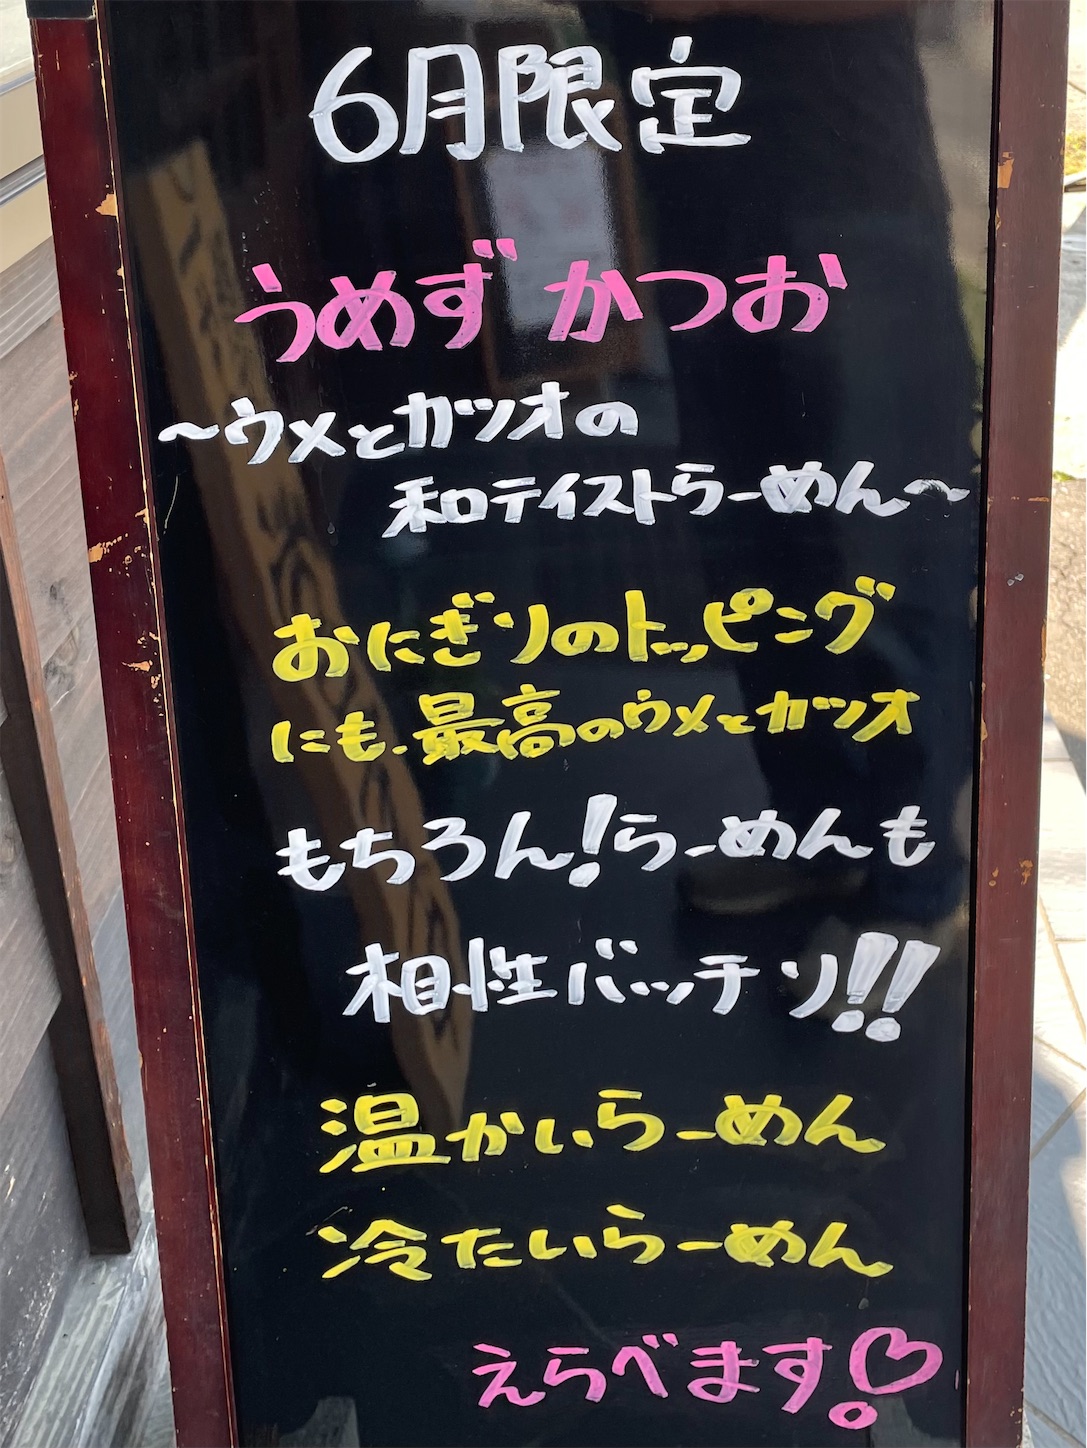 6月限定
うめず かつお
～ウメとカツオの
和テイストらーめん～
おにぎりのトッピング
にも、最高のウメとカツオ
もちろん!らーめんも
相性バッチリ!!
温かいらーめん
冷たいらーめん
えらべます♡